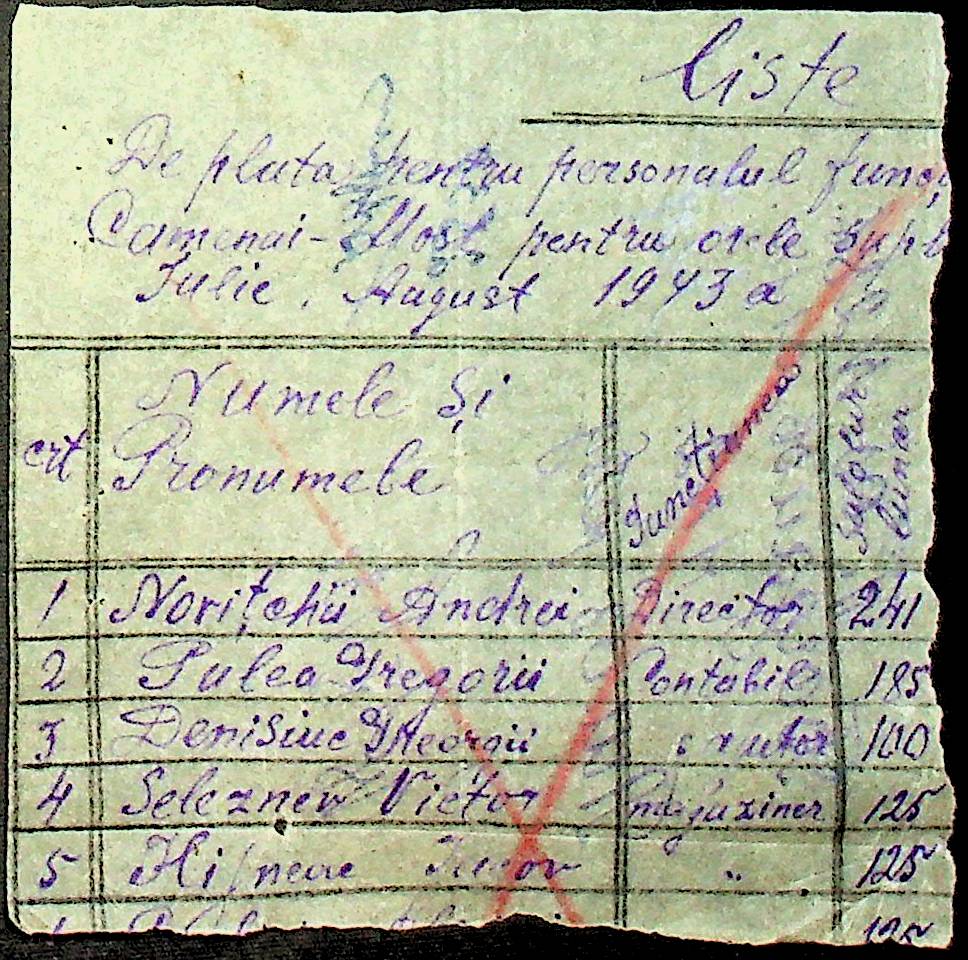 Liste
De plata pentru personalul funcț
Camenai-Most pentru orele
Iulie, August 1943 a
crt Numele Și Pronumele Funcțiunea lunar
1 Norițchii Andrei Director 241
2 Pulea Gregorii Contabil 185
3 Denisiuc Gheorgii 100
4 Seleznev Victor magaziner 125
5 " 125